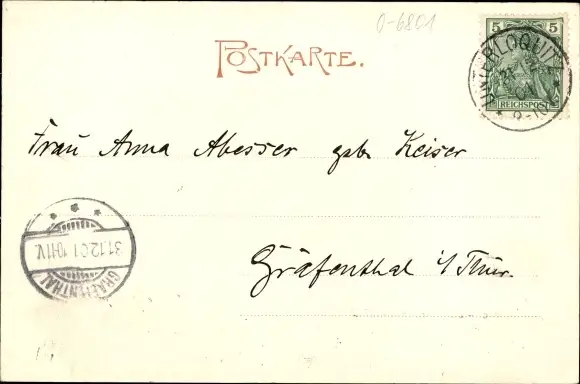 0-6801
POSTKARTE.
5 5
REICHSPOST
UNTERLOQUITZ
Frau Anna Abesser geb. Keiser
31.12.01.10-11V.
GRAEFENTHAL
Gräfenthal i/Thür.